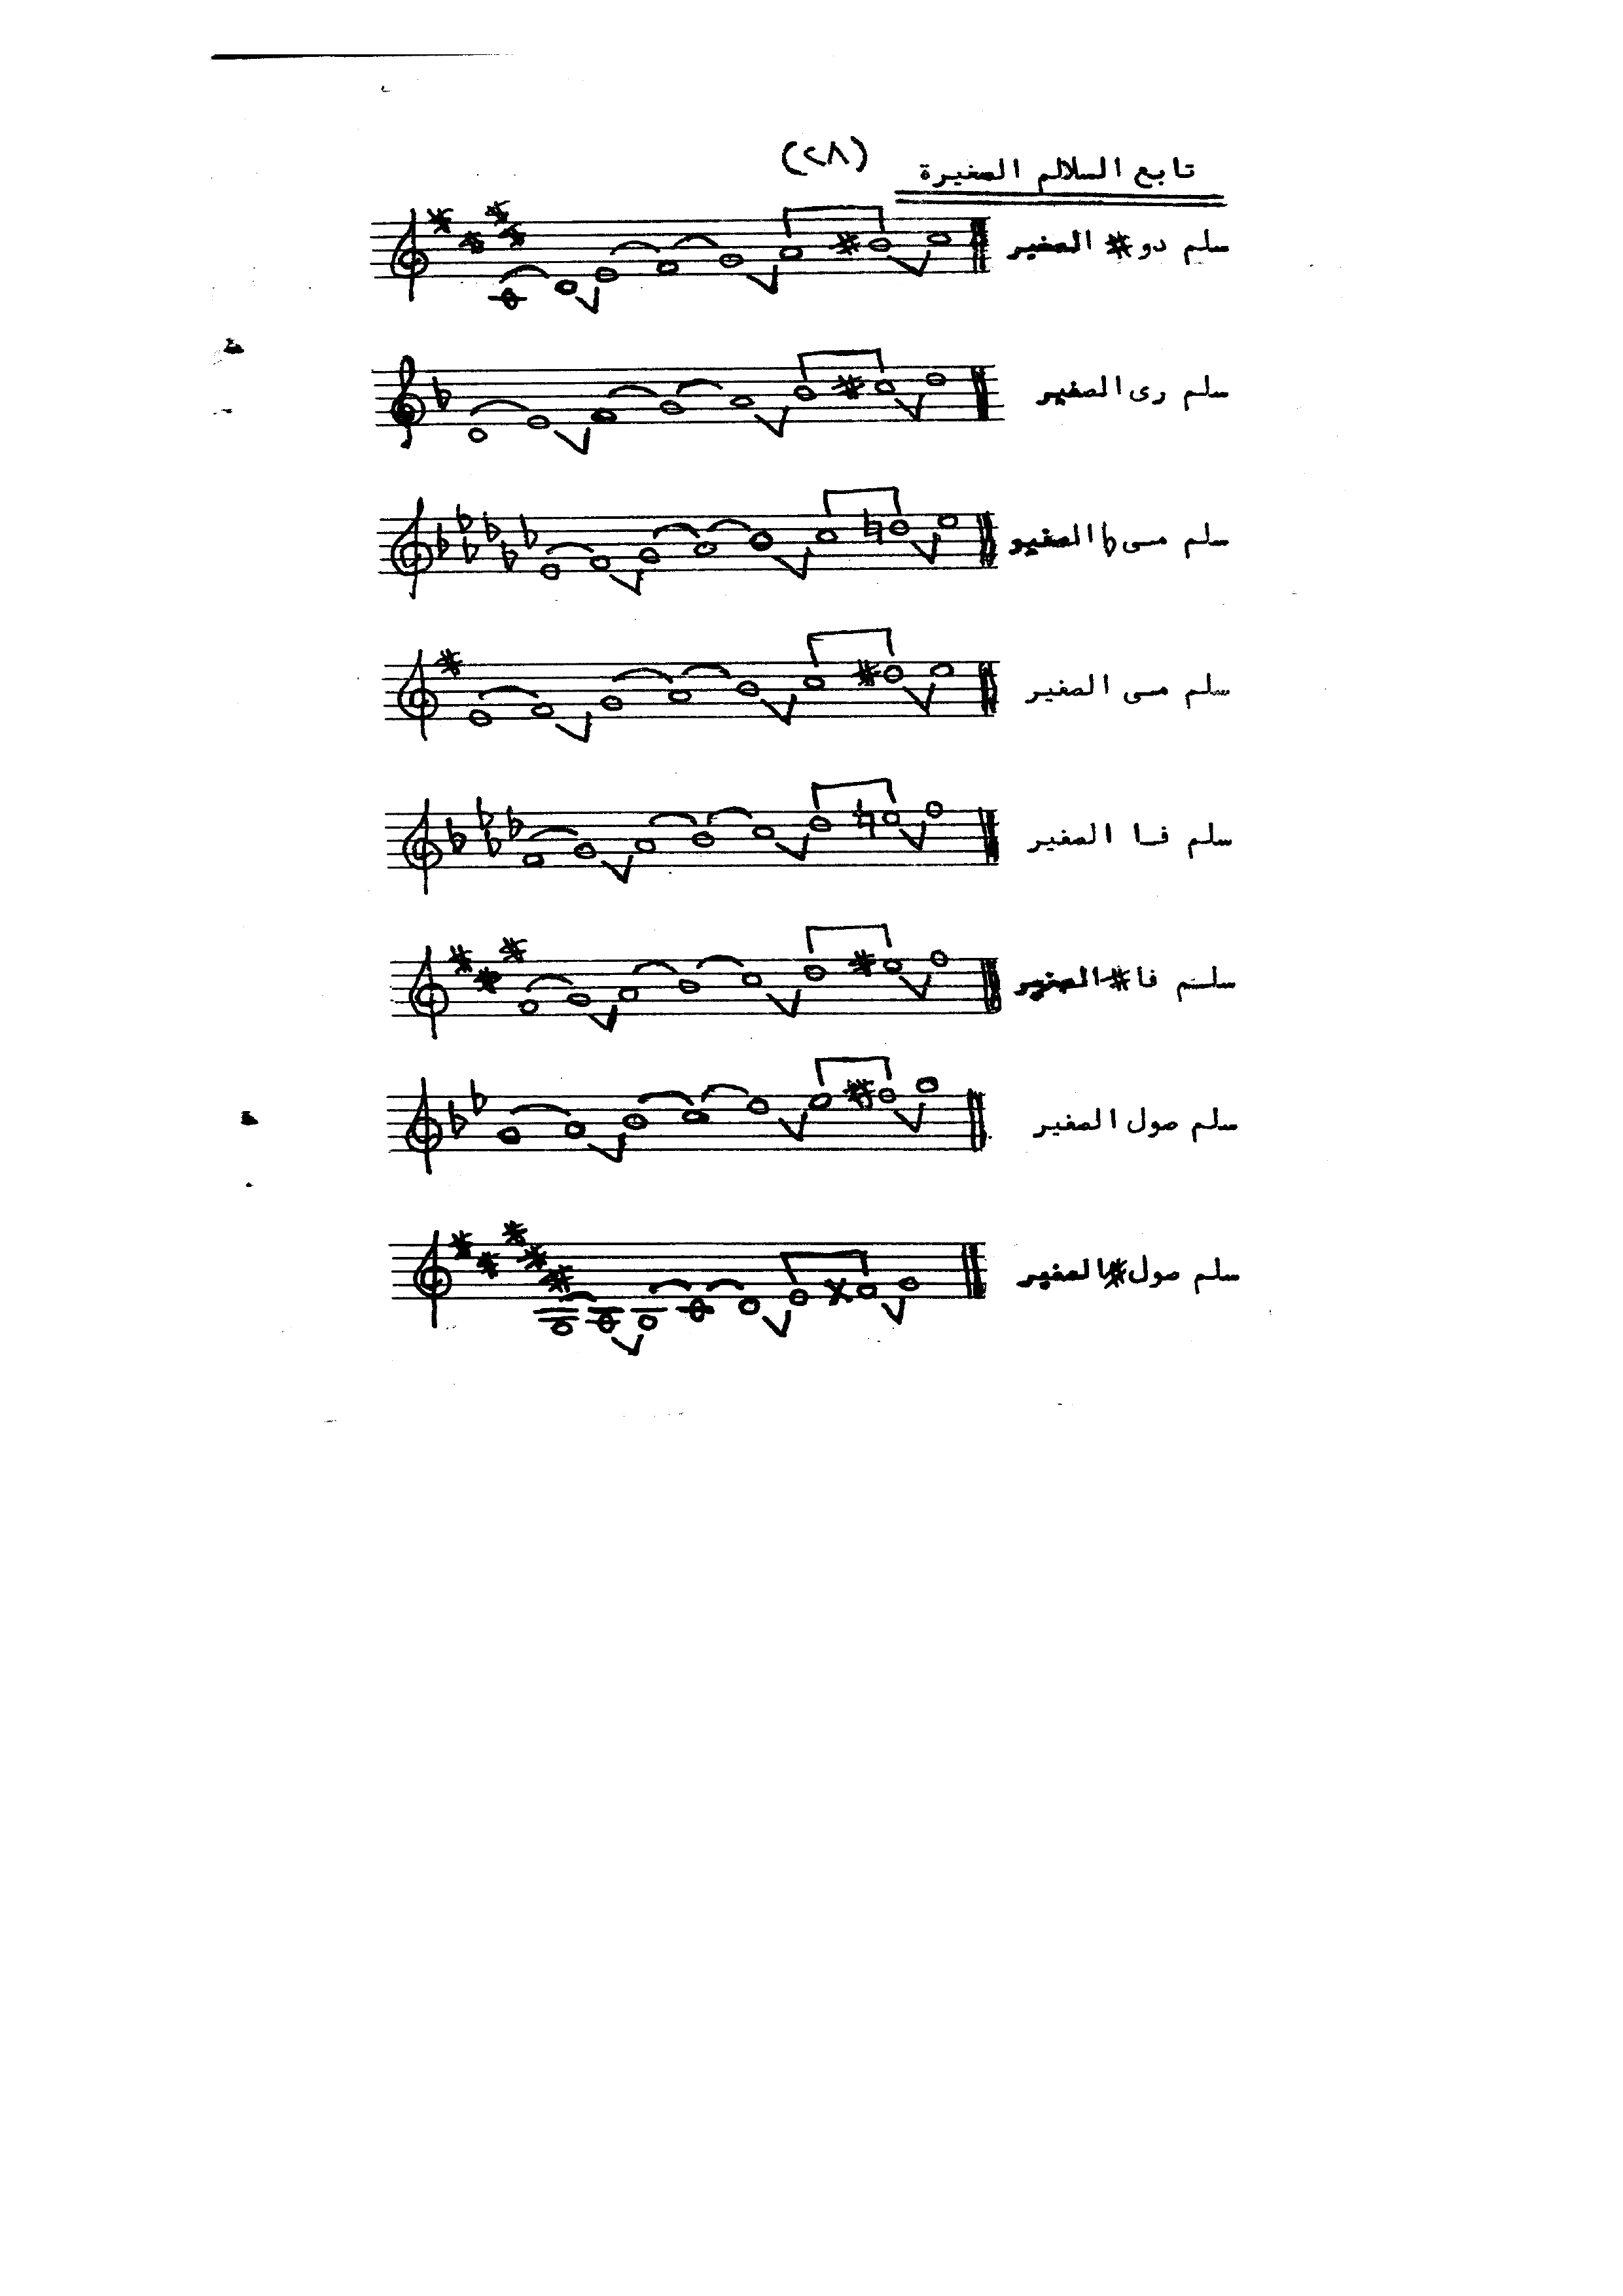 تابع السلالم الصغيرة
(٢٨)
سلم دو # الصغير
سلم رى الصغير
سلم مى b الصغير
سلم مى الصغير
سلم فا الصغير
سلم فا # الصغير
سلم صول الصغير
سلم صول # الصغير